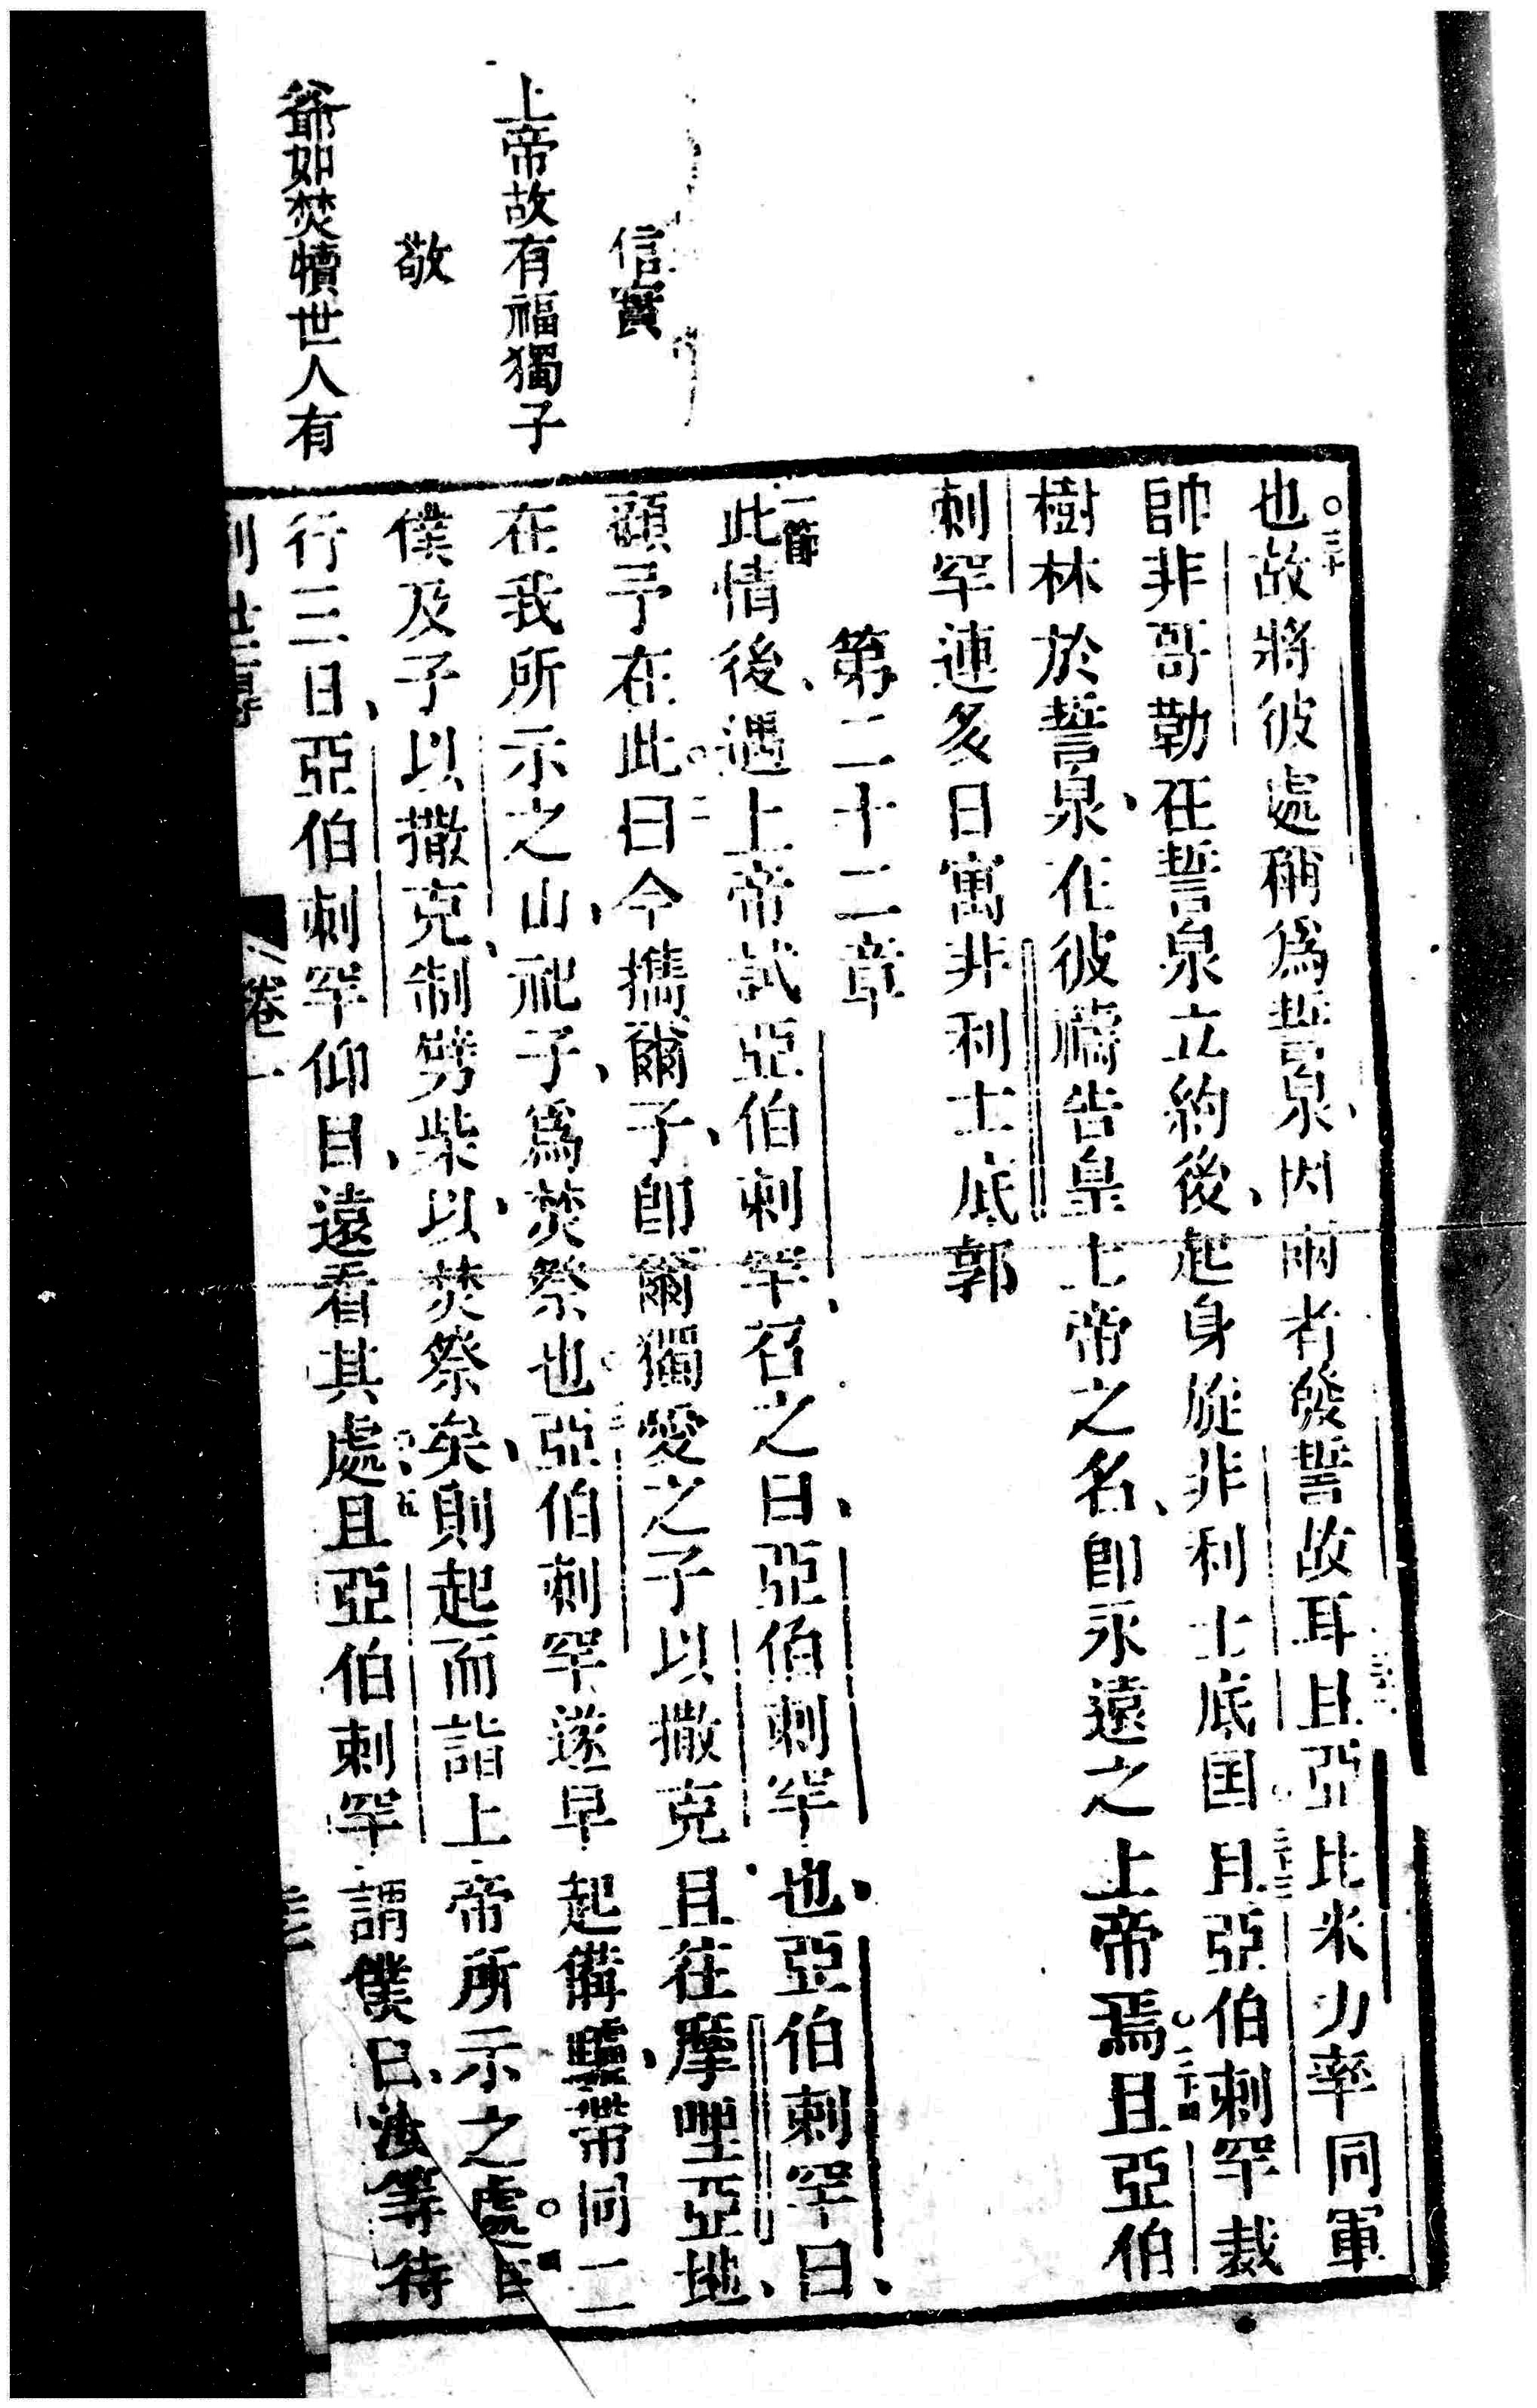 信實
上帝故有福獨子
敬
爺如焚犢世人有
也故將彼處稱為誓泉因兩者發誓故耳且亞比米力率同軍
帥非哥勒在誓泉立約後起身旋非利士底国且亞伯剌罕栽
樹林於誓泉在彼禱告皇上帝之名卽永遠之上帝焉且亞伯
剌罕連多日寓非利士底郭
第二十二章
一節
此情後遇上帝試亞伯剌罕召之曰亞伯剌罕也亞伯剌罕曰
顧予在此曰今攜爾子卽爾獨愛之子以撒克且往摩哩亞地
在我所示之山祀子為焚祭也亞伯剌罕遂早起備驢帶同二
僕及子以撒克制劈柴以焚祭矣則起而詣上帝所示之處
行三日亞伯剌罕仰目遠看其處且亞伯剌罕謂僕曰汝等待
卷一